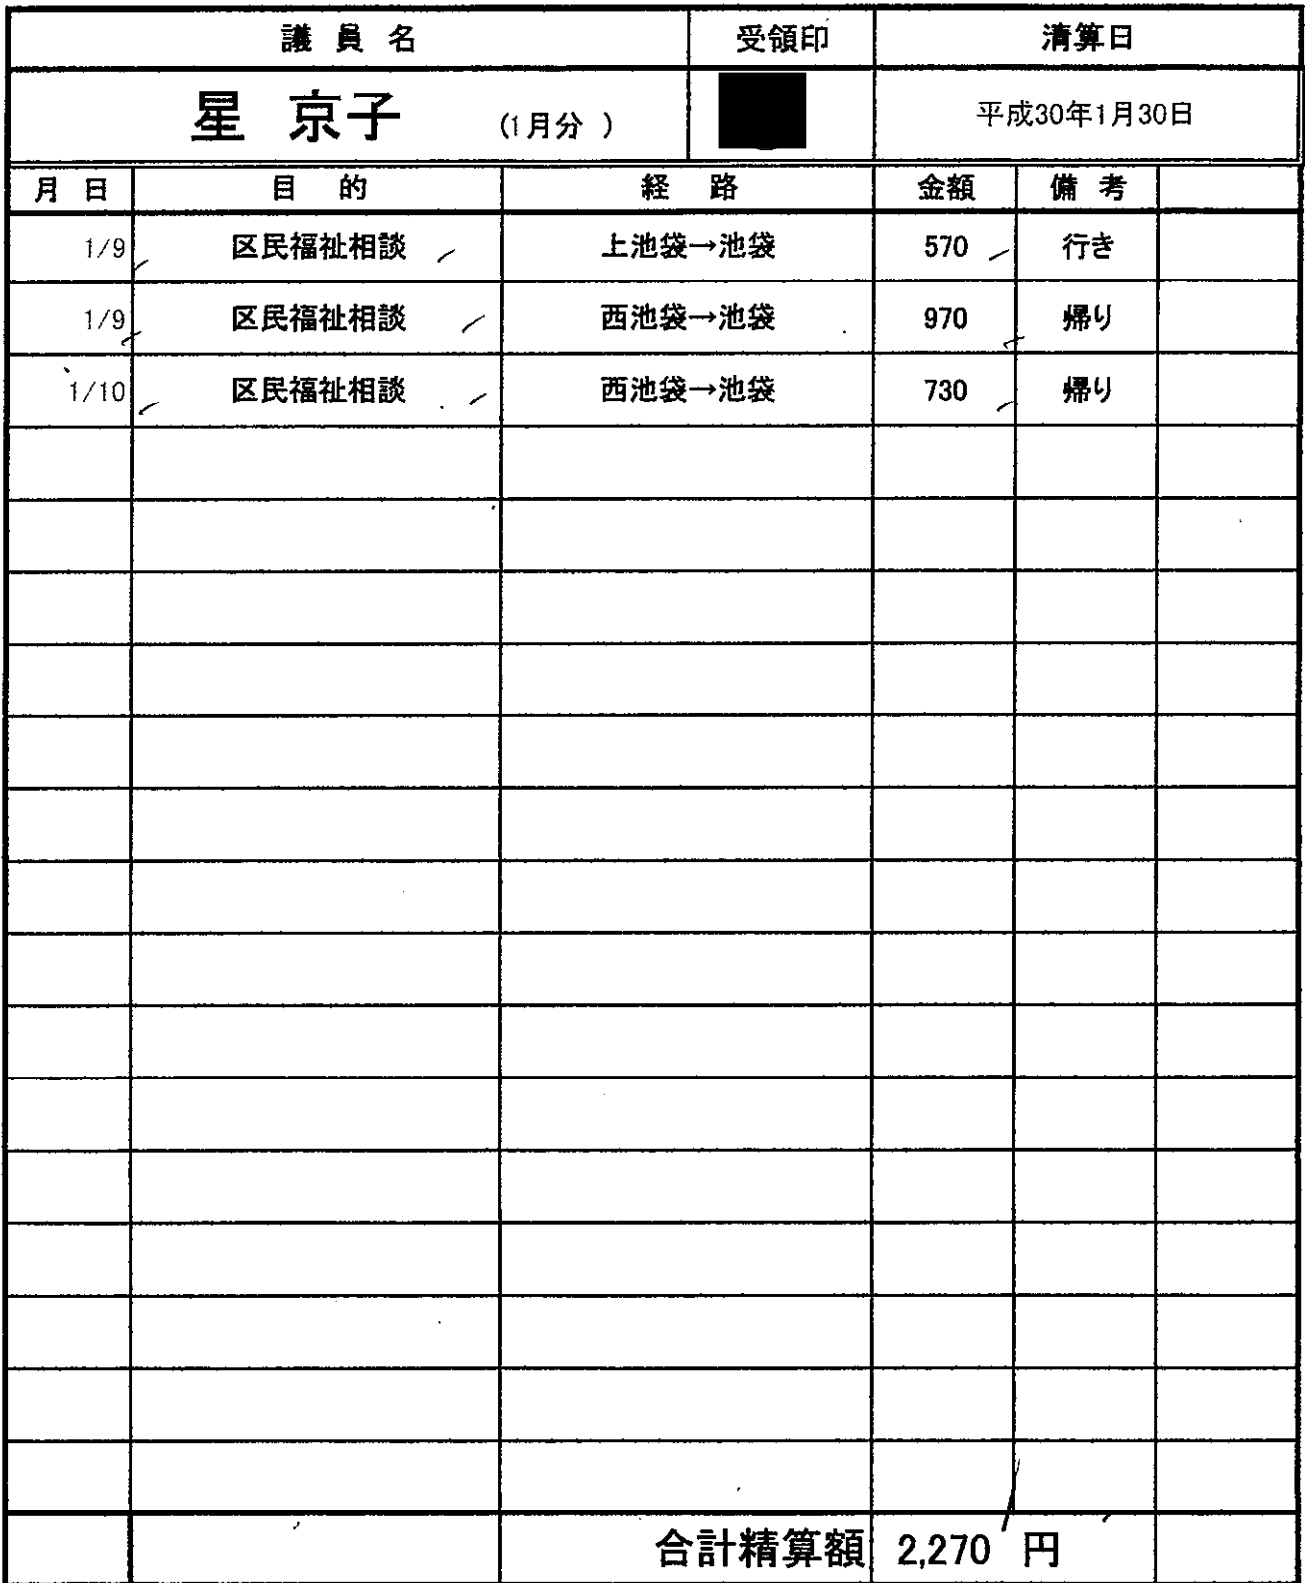 議員名 受領印 清算日
星 京子 (1月分 ) 平成30年1月30日
月日 目的 経路 金額 備考
1/9 区民福祉相談 上池袋→池袋 570 行き
1/9 区民福祉相談 西池袋→池袋 970 帰り
1/10 区民福祉相談 西池袋→池袋 730 帰り
合計精算額 2,270 円